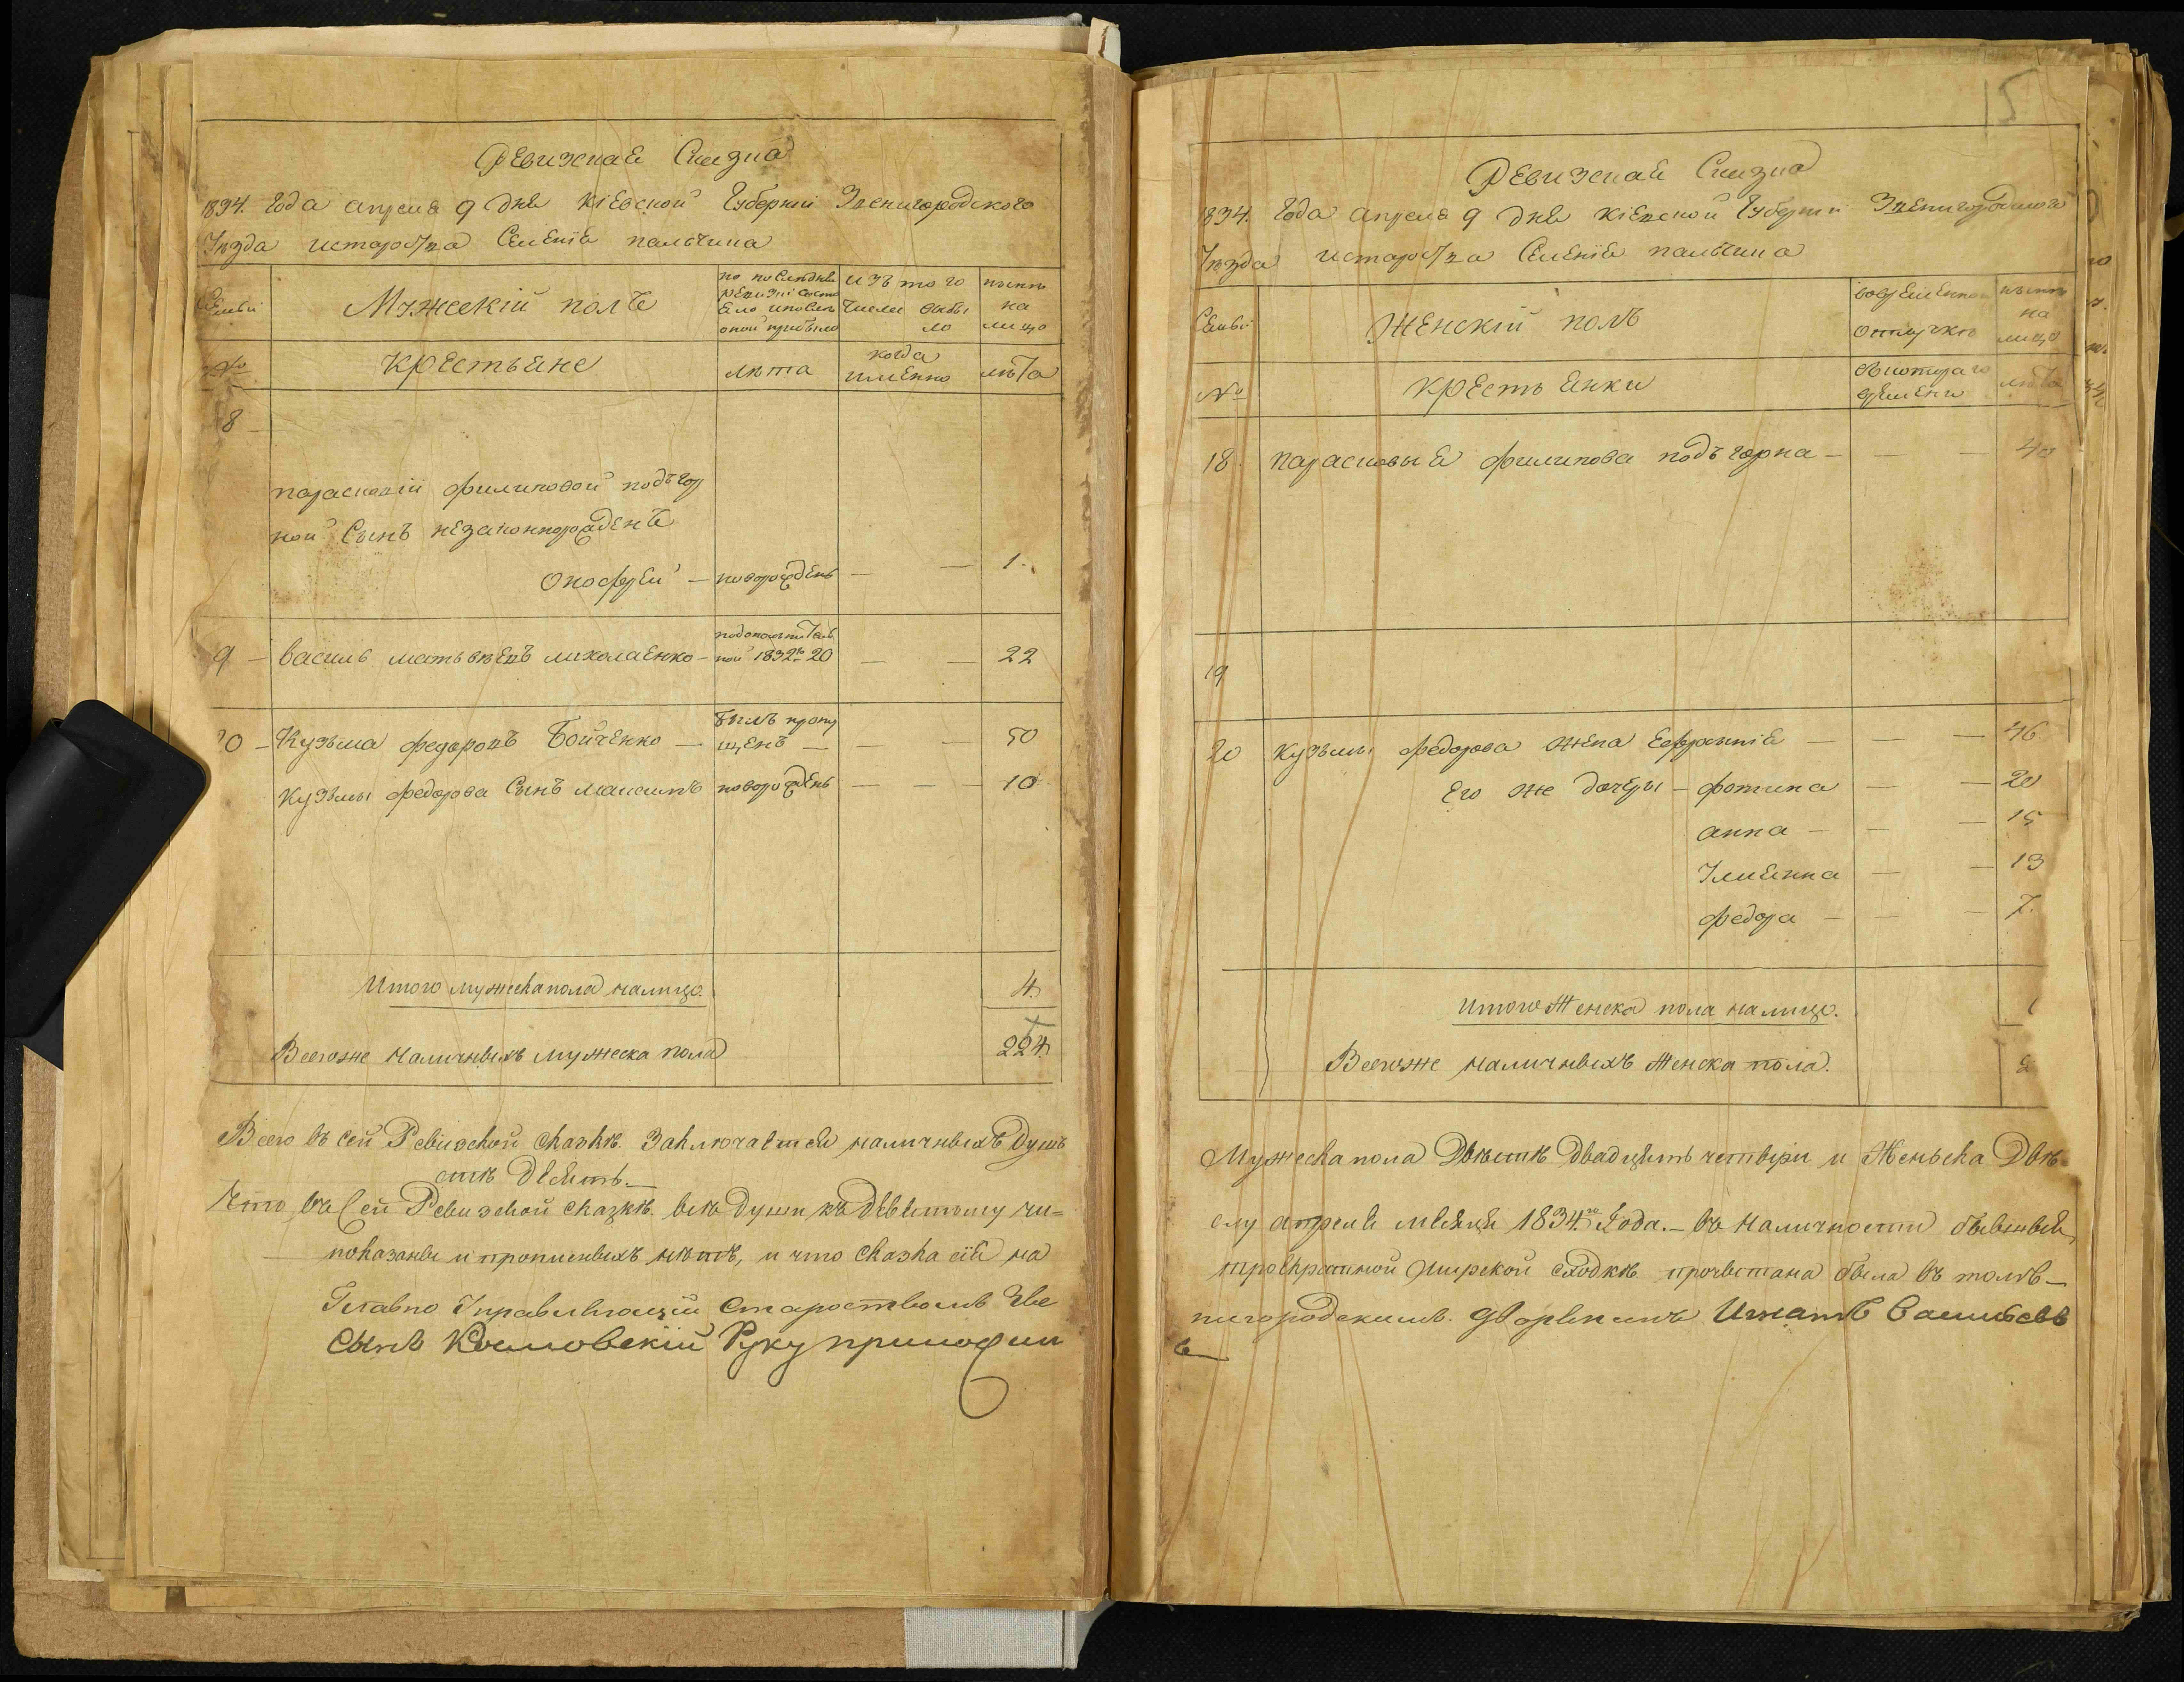 Ревизская Сказка
1834. года апреля 9 дня Кіевской Губерніи Звенигородского
Уезда и староства Селенія пальчика
Семьи
Мужескій полъ
по последней ревизіи состояло и после оной прибыло
изъ того числа выбыло
ныне на лицо
№
Крестьяне
лѣта
когда именно
лѣта
18
парасковіи филиповой подъгор
ной Сынъ незаконнорожденъ
Онофрей — новорожденъ — — 1.
19 — василь матьвѣевъ миколаенко — подополнитель ной 1832го 20 — — 22
20 — Кузьма федоровъ Бойченко — былъ пропу щенъ — — — 50
Кузьмы федорова Сынъ максимъ новорожденъ — — — 10
Итого мужеска пола налицо. 4
Всегоже наличныхъ мужеска пола 224.
Всего въ сей Ревизской сказкѣ. Заключается наличныхъ душъ
стѣ десять.—
Что въ Сей Ревизской сказкѣ. всѣ души къ девятому чи=
показаны и прописныхъ нѣтъ, и что сказка сія на
Главно Управляющій Староствомъ
Сынъ Руку приложил
15
Ревизская Сказка
1834. года апреля 9 дня Кіевской Губерніи Звенигородского
Уезда и староства Селенія пальчика
Семьи
Женскій полъ
вовременной отлучкѣ
ныне на лицо
№
Крестьянки
съкотораго времени
лѣта
18. параскович филипова подъгорна — — — 40
19
20 Кузьмы федорова жена Евфросинія — — — 46
Его же дочеры — фотина — — 20
анна — — — 15
Улияна — — 13
федора — — — 7.
Итого Женска пола налицо.
Всегоже наличныхъ Женска пола.
Мужеска пола Двѣстѣ двадцять четыри и Женьска Двѣ=
слу апреля месяця 1834го Года.— въ наличности бывшый
троекратной мирской сходкѣ прочитана была въ томъ—
нигородскимъ. дворянинъ Игнатъ